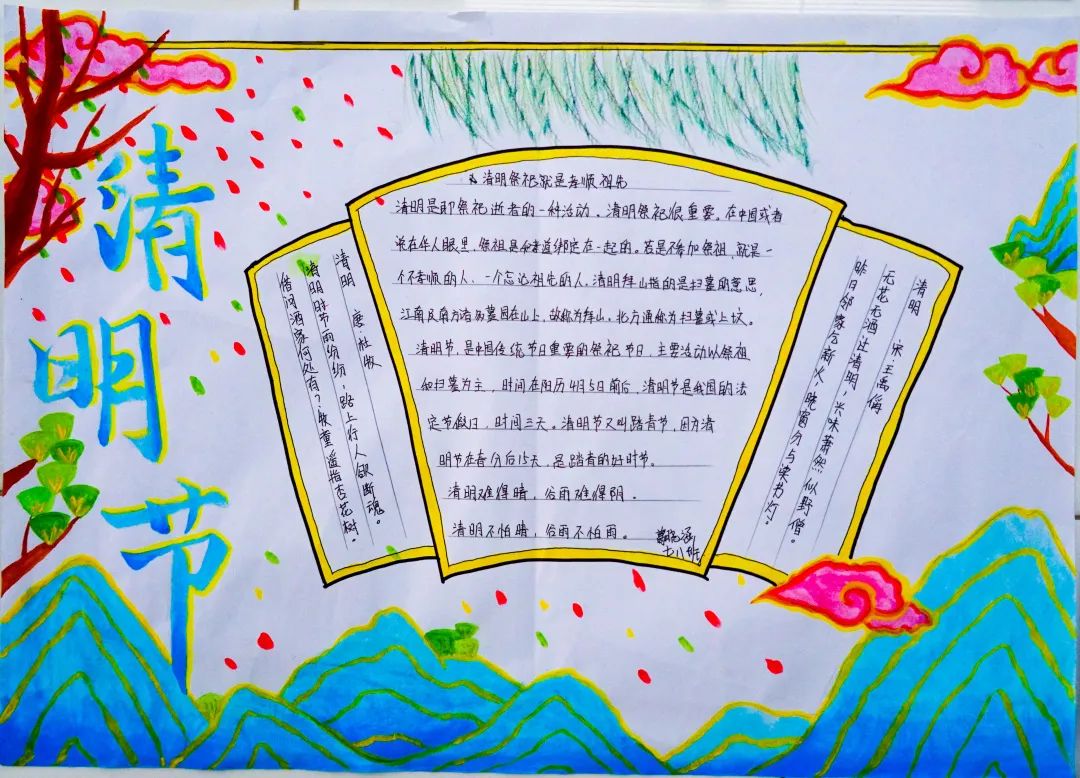 清明节
清明祭祀就是孝顺祖先
清明是即祭祀逝者的一种活动。清明祭祀很重要。在中国或者
说在华人眼里,祭祖是和孝道绑定在一起的。若是不参加祭祖,就是一
个不孝顺的人、一个忘记祖先的人。清明拜山指的是扫墓的意思,
江南及南方诸多墓园在山上,故称为拜山。北方通称为扫墓或上坟。
清明节,是中国传统节日重要的祭祀节日,主要活动以祭祖
和扫墓为主,时间在阳历4月5日前后,清明节是我国的法
定节假日,时间三天。清明节又叫踏青节,因为清
明节在春分后15天,是踏青的好时节。
清明难得晴,谷雨难得阴。
清明不怕晴,谷雨不怕雨。
清明 唐·杜牧
清明时节雨纷纷,路上行人欲断魂。
借问酒家何处有?牧童遥指杏花树。
清明 宋 王禹偁
无花无酒过清明,兴味萧然似野僧。
昨日邻家乞新火,晓窗分与读书灯。